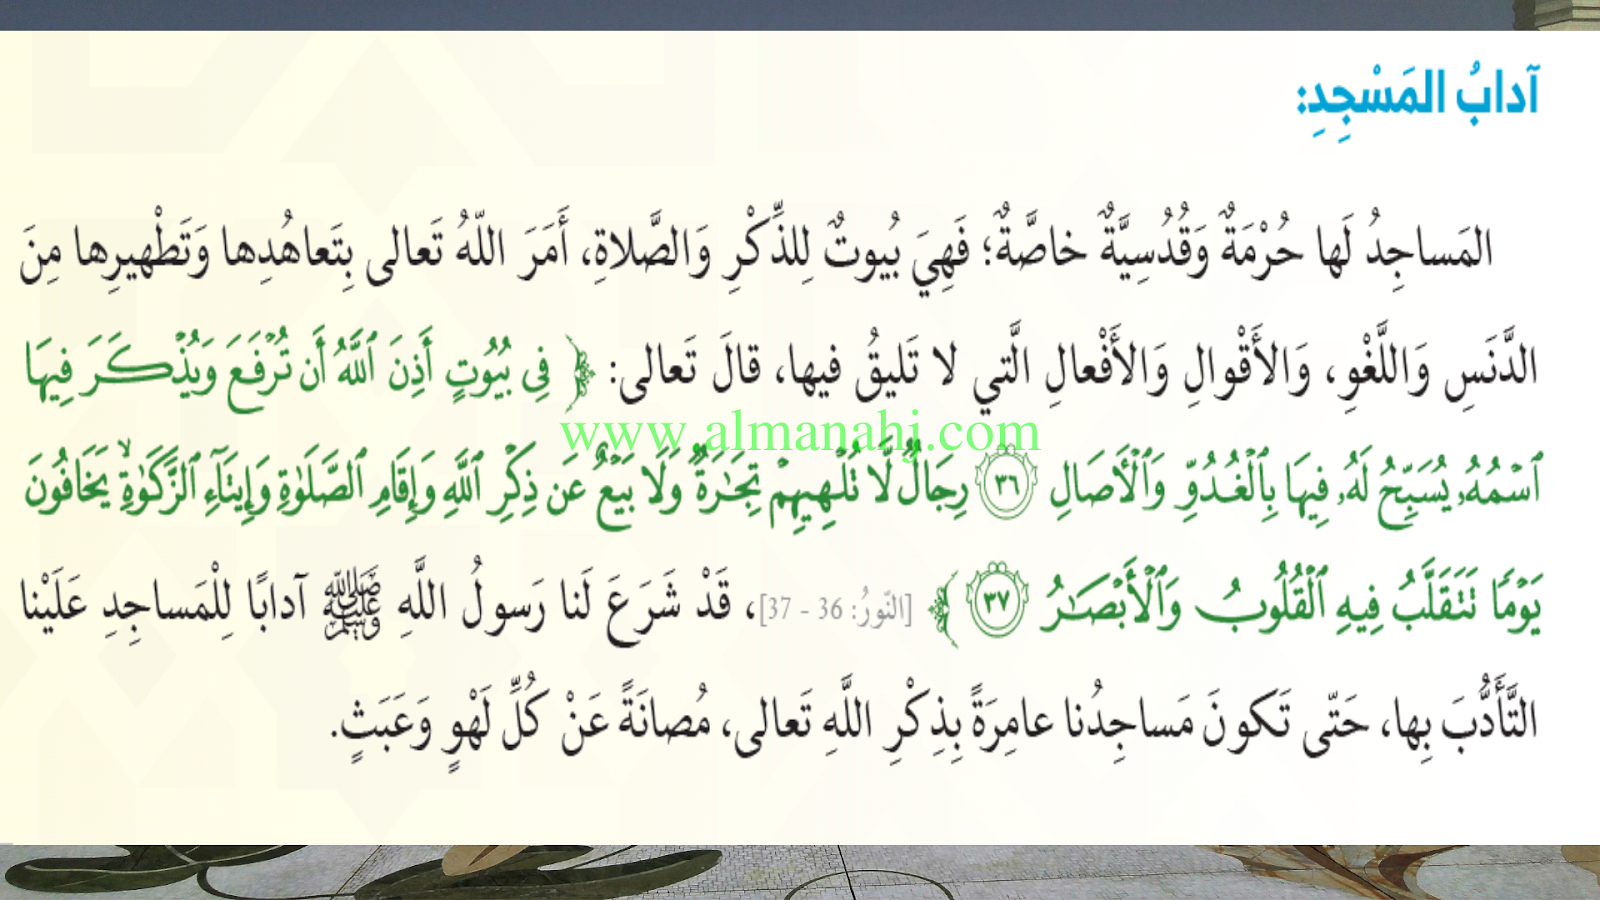 آدابُ المَسْجِدِ:
المَساجِدُ لَها حُرْمَةٌ وَقُدُسِيَّةٌ خاصَّةٌ؛ فَهِيَ بُيوتٌ لِلذِّكْرِ وَالصَّلاةِ، أَمَرَ اللّهُ تَعالى بِتَعاهُدِها وَتَطْهيرِها مِنَ
الدَّنَسِ وَاللَّغْوِ، وَالأَقْوالِ وَالأَفْعالِ الَّتي لا تَليقُ فيها، قالَ تَعالى: ﴿ فِى بُيُوتٍ أَذِنَ ٱللَّهُ أَن تُرْفَعَ وَيُذْكَرَ فِيهَا
www.almanahj.com
ٱسْمُهُۥ يُسَبِّحُ لَهُۥ فِيهَا بِٱلْغُدُوِّ وَٱلْأَصَالِ ٣٦ رِجَالٌ لَّا تُلْهِيهِمْ تِجَٰرَةٌ وَلَا بَيْعٌ عَن ذِكْرِ ٱللَّهِ وَإِقَامِ ٱلصَّلَوٰةِ وَإِيتَآءِ ٱلزَّكَوٰةِ ۙ يَخَافُونَ
يَوْمًا تَتَقَلَّبُ فِيهِ ٱلْقُلُوبُ وَٱلْأَبْصَٰرُ ٣٧ ﴾ [النّورُ: 36 - 37]، قَدْ شَرَعَ لَنا رَسولُ اللَّهِ ﷺ آدابًا لِلْمَساجِدِ عَلَيْنا
التَّأَدُّبَ بِها، حَتّى تَكونَ مَساجِدُنا عامِرَةً بِذِكْرِ اللَّهِ تَعالى، مُصانَةً عَنْ كُلِّ لَهْوٍ وَعَبَثٍ.